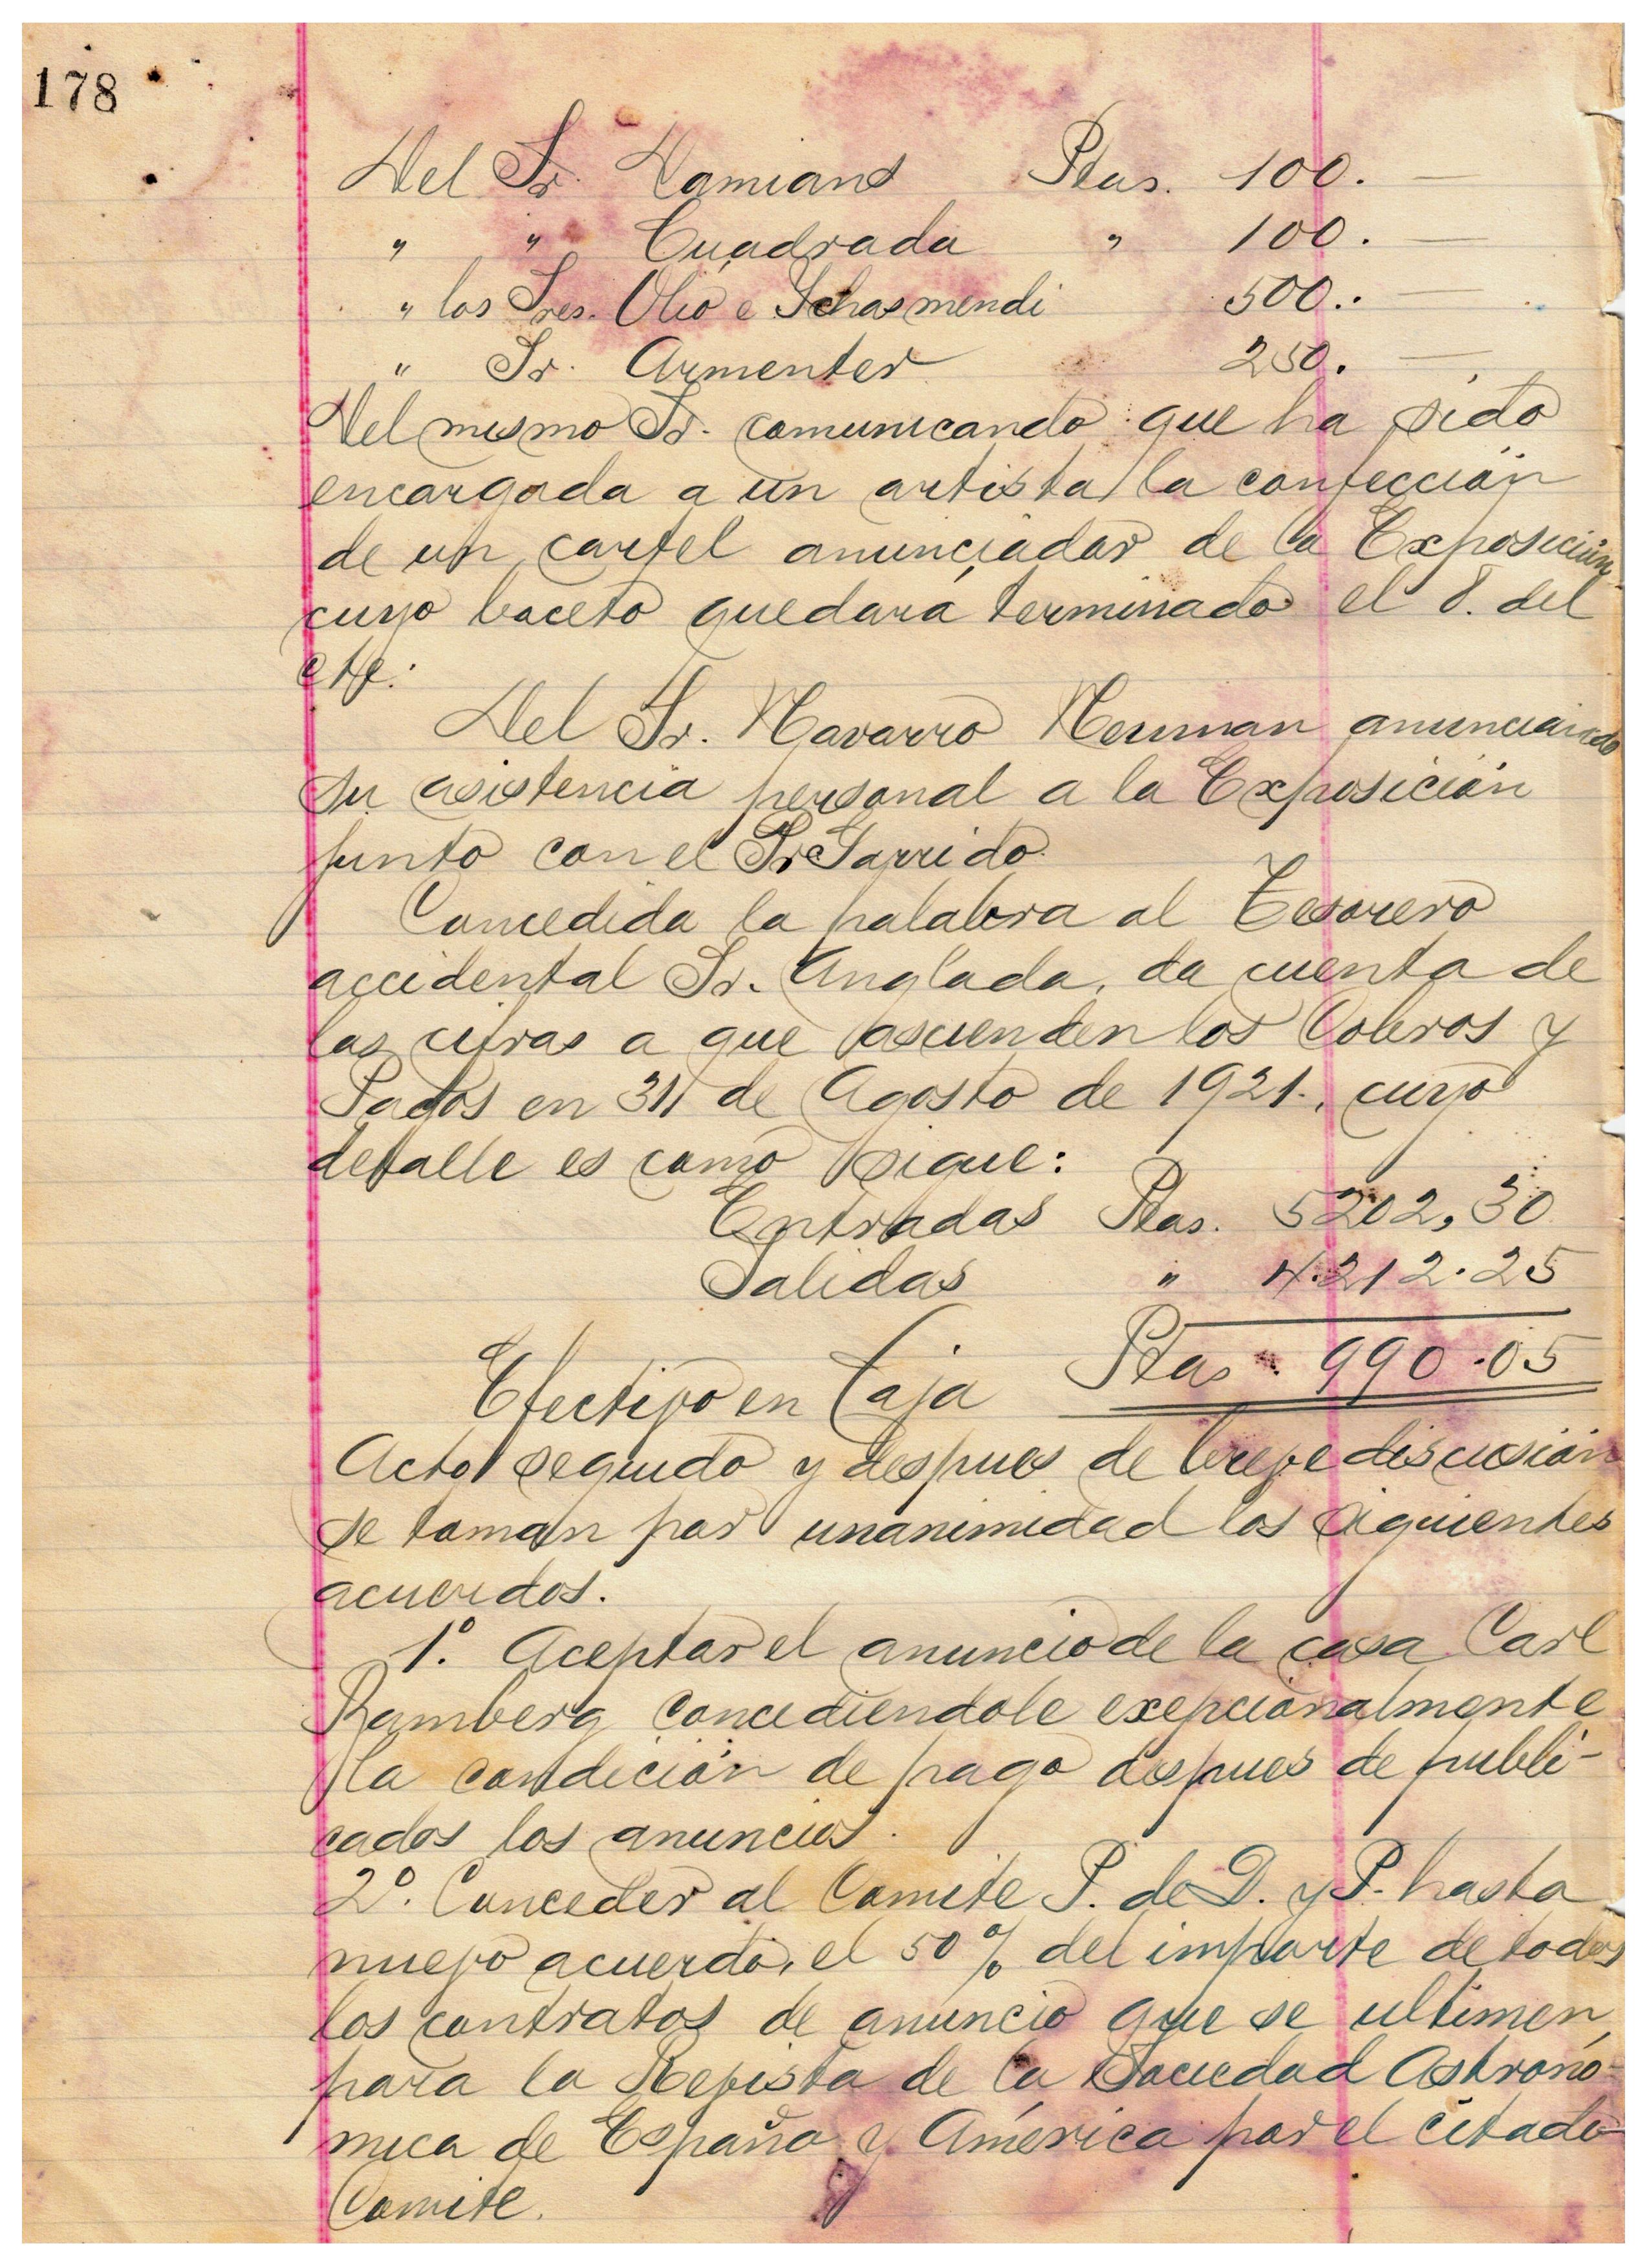 178
Del Sr. Damians Ptas. 100. —
" " Cuadrada " 100. —
" los Sres. Olio e Ichasmendi 500. —
" Sr. Armenter 250. —
Del mismo Sr. comunicando que ha sido
encargada a un artista la confección
de un cartel anunciador de la Exposición
cuyo boceto quedará terminado el 8. del
cte.
Del Sr. Navarro Neuman anunciando
su asistencia personal a la Exposición
junto con el Sr Garrido.
Concedida la palabra al Tesorero
accidental Sr. Anglada, da cuenta de
las cifras a que ascienden los Cobros y
Pagos en 31 de Agosto de 1921., cuyo
detalle es como sigue:
Entradas Ptas. 5202,30
Salidas " 4.212.25
Efectivo en Caja Ptas. 990.05
Acto seguido y despues de breve discusión
se toman por unanimidad los siguientes
acuerdos.
1º. Aceptar el anuncio de la casa Carl
Bamberg concediendole exepcionalmente
la condición de pago despues de publi-
cados los anuncios.
2º. Conceder al Comite P. de D. y P. hasta
nuevo acuerdo, el 50% del importe de todos
los contratos de anuncio que se ultimen
para la Revista de la Sociedad Astronó-
mica de España y América por el citado
Comite.